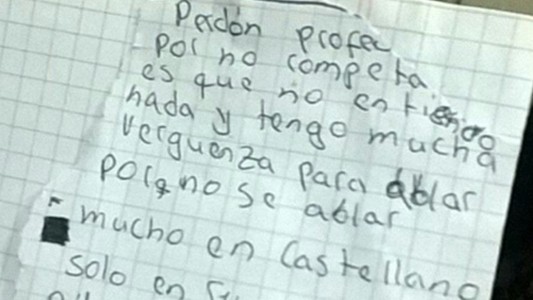 Perdón profe
por no competa.
es que no entiendo
nada y tengo mucha
verguenza para ablar
porq no se ablar
mucho en Castellano
solo en